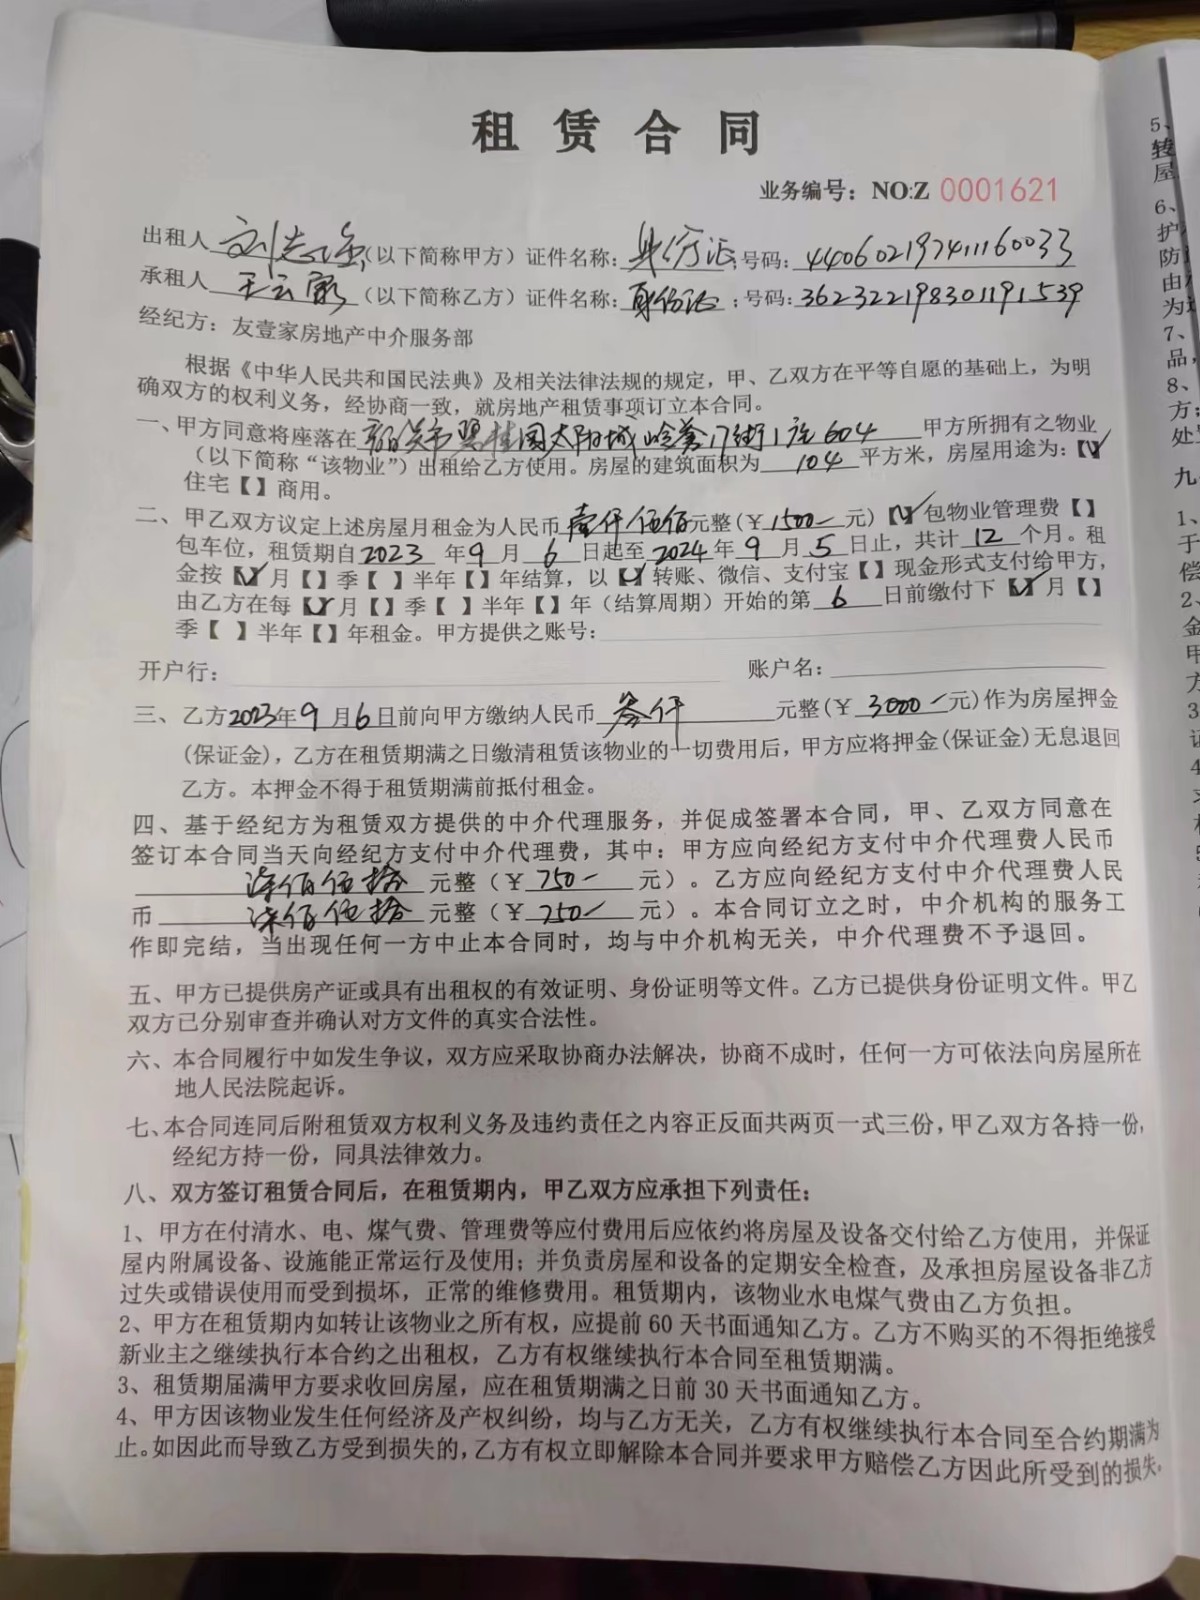 租赁合同
业务编号：NO:Z 0001621
出租人 刘志 （以下简称甲方）证件名称：身份证；号码：440602197411160033
承租人 王云 （以下简称乙方）证件名称：身份证；号码：362322198301191539
经纪方：友壹家房地产中介服务部
根据《中华人民共和国民法典》及相关法律法规的规定，甲、乙双方在平等自愿的基础上，为明
确双方的权利义务，经协商一致，就房地产租赁事项订立本合同。
一、甲方同意将座落在 碧桂园太阳城 17街1座604 甲方所拥有之物业
（以下简称“该物业”）出租给乙方使用。房屋的建筑面积为 104 平方米，房屋用途为：【✓】
住宅【】商用。
二、甲乙双方议定上述房屋月租金为人民币壹仟伍佰元整(￥1500—元)【✓】包物业管理费【】
包车位，租赁期自2023年9月6日起至2024年9月5日止，共计12个月。租
金按【✓】月【】季【】半年【】年结算，以【✓】转账、微信、支付宝【】现金形式支付给甲方，
由乙方在每【✓】月【】季【 】半年【】年（结算周期）开始的第6日前缴付下【✓】月【】
季【 】半年【】年租金。甲方提供之账号：
开户行： 账户名：
三、乙方2023年9月6日前向甲方缴纳人民币叁仟元整(￥3000—元)作为房屋押金
(保证金)，乙方在租赁期满之日缴清租赁该物业的一切费用后，甲方应将押金(保证金)无息退回
乙方。本押金不得于租赁期满前抵付租金。
四、基于经纪方为租赁双方提供的中介代理服务，并促成签署本合同，甲、乙双方同意在
签订本合同当天向经纪方支付中介代理费，其中：甲方应向经纪方支付中介代理费人民币
柒佰伍拾元整（￥750—元）。乙方应向经纪方支付中介代理费人民
币 柒佰伍拾元整（￥750—元）。本合同订立之时，中介机构的服务工
作即完结，当出现任何一方中止本合同时，均与中介机构无关，中介代理费不予退回。
五、甲方已提供房产证或具有出租权的有效证明、身份证明等文件。乙方已提供身份证明文件。甲乙
双方已分别审查并确认对方文件的真实合法性。
六、本合同履行中如发生争议，双方应采取协商办法解决，协商不成时，任何一方可依法向房屋所在
地人民法院起诉。
七、本合同连同后附租赁双方权利义务及违约责任之内容正反面共两页一式三份，甲乙双方各持一份，
经纪方持一份，同具法律效力。
八、双方签订租赁合同后，在租赁期内，甲乙双方应承担下列责任：
1、甲方在付清水、电、煤气费、管理费等应付费用后应依约将房屋及设备交付给乙方使用，并保证
屋内附属设备、设施能正常运行及使用；并负责房屋和设备的定期安全检查，及承担房屋设备非乙方
过失或错误使用而受到损坏，正常的维修费用。租赁期内，该物业水电煤气费由乙方负担。
2、甲方在租赁期内如转让该物业之所有权，应提前60天书面通知乙方。乙方不购买的不得拒绝接受
新业主之继续执行本合约之出租权，乙方有权继续执行本合同至租赁期满。
3、租赁期届满甲方要求收回房屋，应在租赁期满之日前30天书面通知乙方。
4、甲方因该物业发生任何经济及产权纠纷，均与乙方无关，乙方有权继续执行本合同至合约期满为
止。如因此而导致乙方受到损失的，乙方有权立即解除本合同并要求甲方赔偿乙方因此所受到的损失，
5、
转
屋
6、
护
防
由
为
7、
品，
8、
方；
处
九
1、
于
偿
2、
金
甲
方
3
证
4